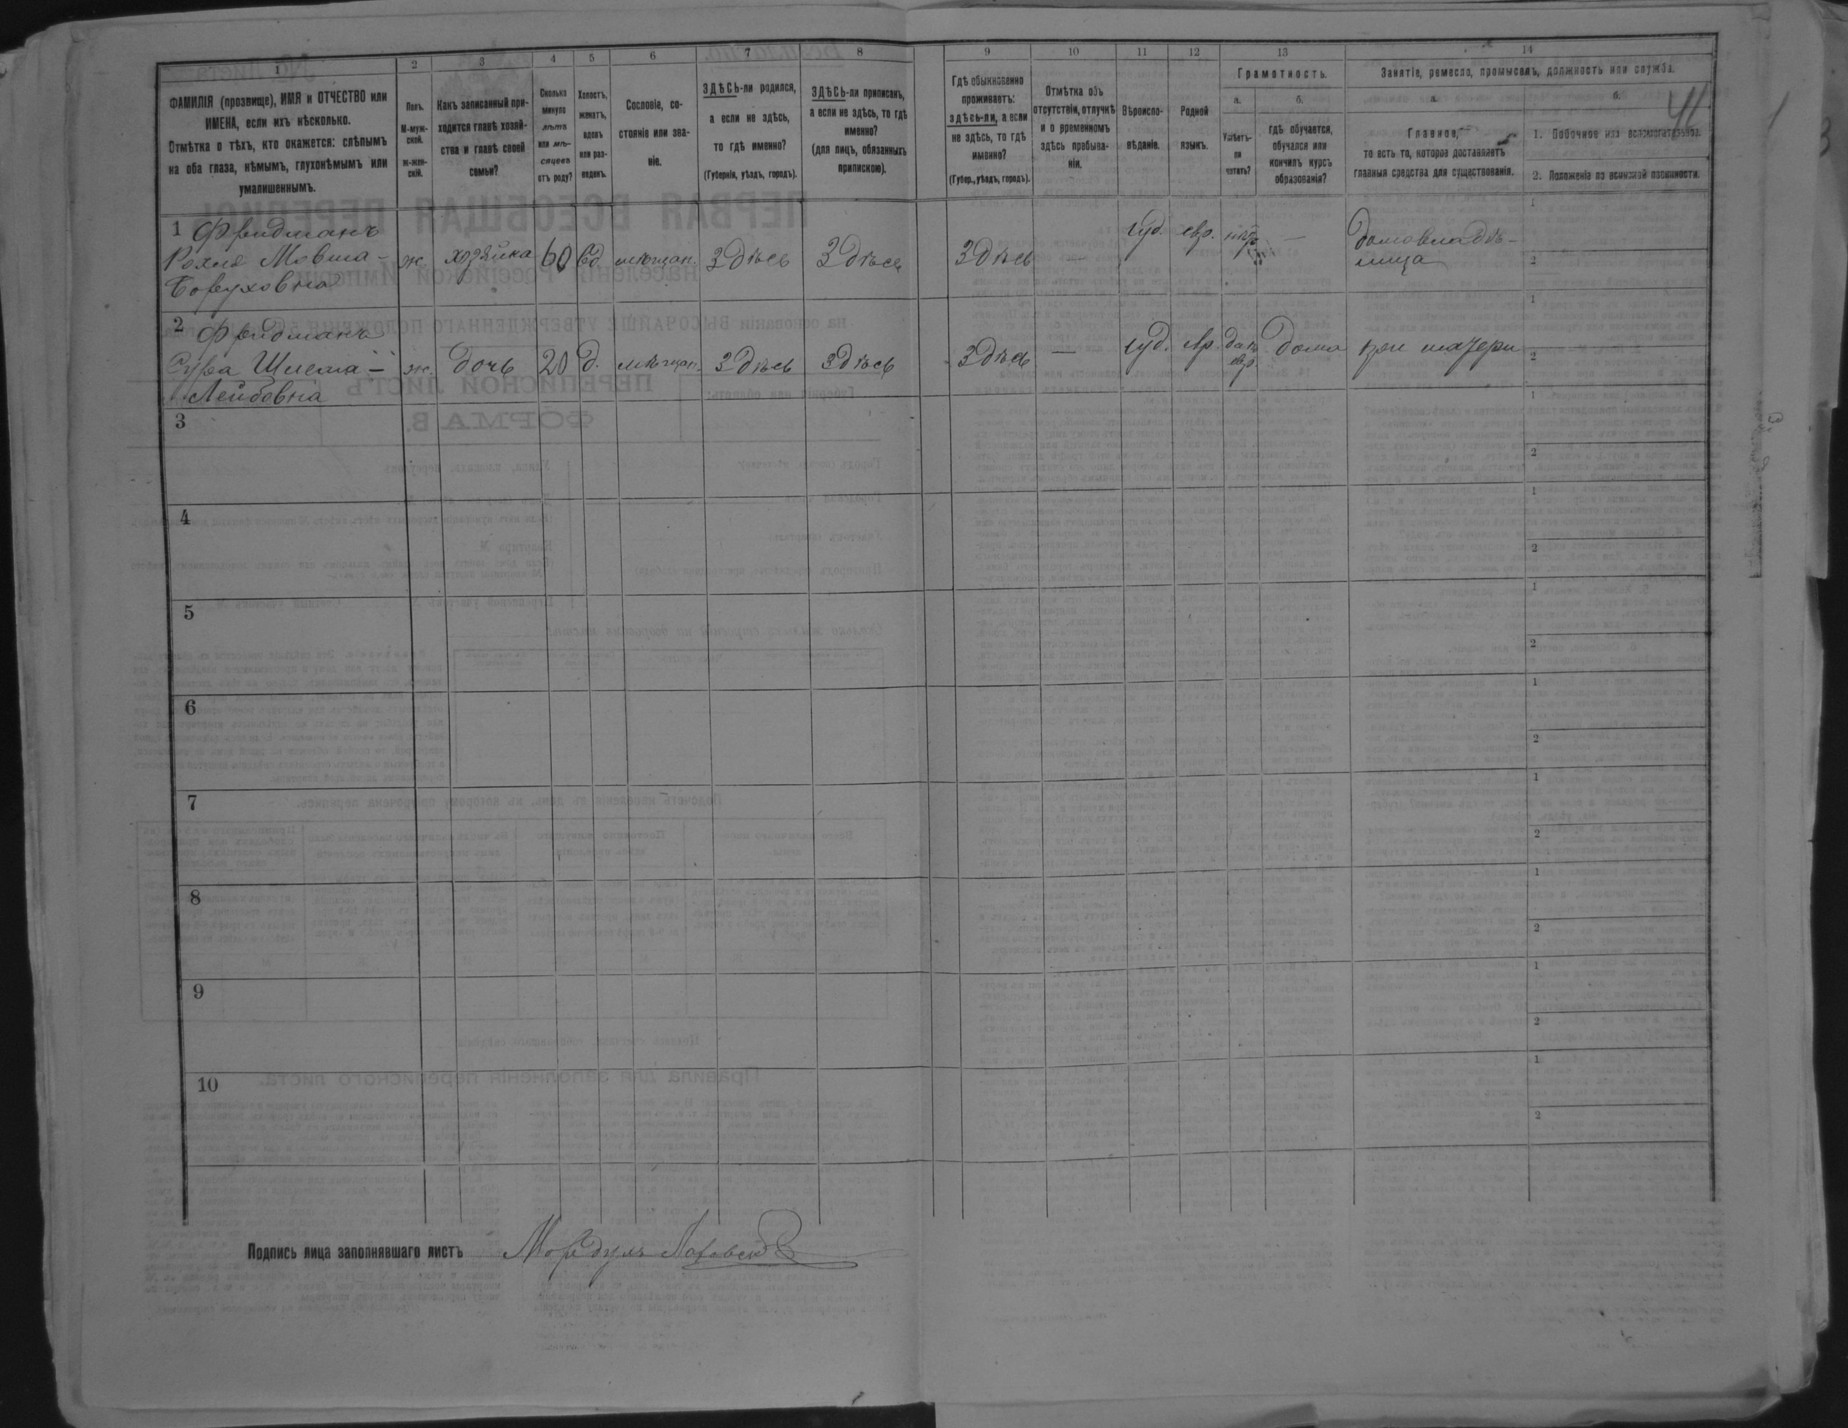 1 2 3 4 5 6 7 8 9 10 11 12 13 14
ФАМИЛІЯ (прозвище), ИМЯ и ОТЧЕСТВО или
ИМЕНА, если ихъ нѣсколько.
Отмѣтка о тѣхъ, кто окажется: слѣпымъ
на оба глаза, нѣмымъ, глухонѣмымъ или
умалишеннымъ.
Полъ.
М-муж-
ской.
Ж-жен-
скій.
Какъ записанный при-
ходится главѣ хозяй-
ства и главѣ своей
семьи?
Сколько
минуло
лѣтъ
или мѣ-
сяцевъ
отъ роду?
Холостъ,
женатъ,
вдовъ
или раз-
веденъ.
Сословіе, со-
стояніе или зва-
ніе.
ЗДѢСЬ-ли родился,
а если не здѣсь,
то гдѣ именно?
(Губернія, уѣздъ, городъ).
ЗДѢСЬ-ли приписанъ,
а если не здѣсь, то гдѣ
именно?
(для лицъ, обязанныхъ
припискою).
Гдѣ обыкновенно
проживаетъ:
здѣсь-ли, а если
не здѣсь, то гдѣ
именно?
(Губер., уѣздъ, городъ).
Отмѣтка объ
отсутствіи, отлучкѣ
и о временномъ
здѣсь пребыва-
ніи.
Вѣроиспо-
вѣданіе.
Родной
языкъ.
Грамотность.
а.
Умѣетъ-
ли
читать?
б.
гдѣ обучается,
обучался или
кончилъ курсъ
образованія?
Занятіе, ремесло, промыселъ, должность или служба.
а.
Главное,
то есть то, которое доставляетъ
главныя средства для существованія.
б.
1. Побочное или вспомогательное.
2. Положеніе по воинской повинности.
41
1 Фридманъ
Рохля Мовша-
Боруховна
ж. хозяйка 60 вд мѣщан. Здѣсь Здѣсь Здѣсь — іуд. евр. — домовладѣ-
лица
2 Фридманъ
Сура Шлема-
Лейбовна
ж. дочь 20 д. мѣщан. Здѣсь Здѣсь Здѣсь — іуд. евр. да евр дома при матери
3
4
5
6
7
8
9
10
Подпись лица заполнявшаго листъ